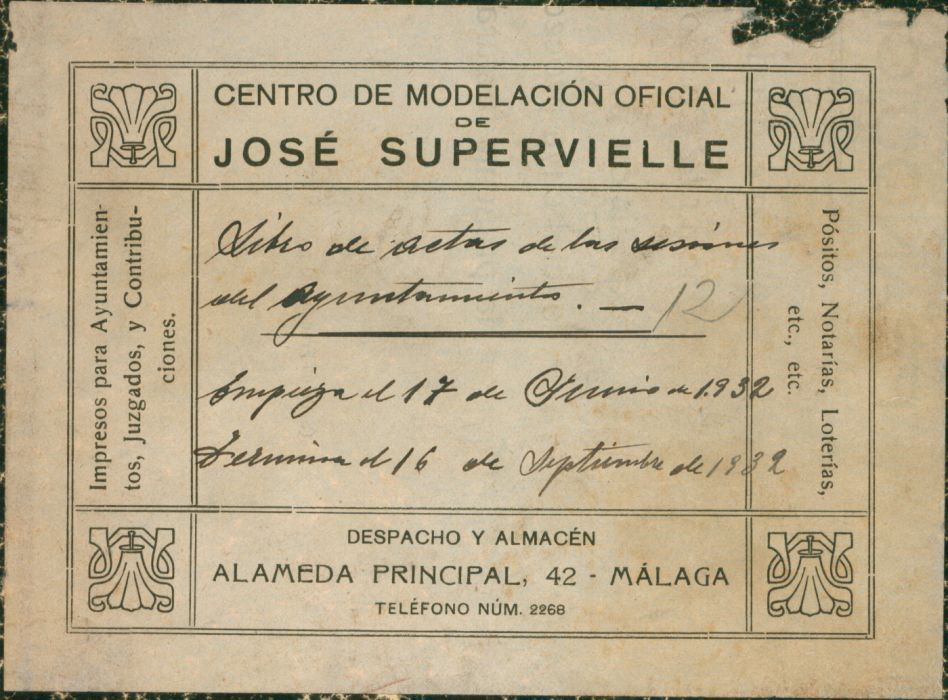 CENTRO DE MODELACIÓN OFICIAL
DE
JOSÉ SUPERVIELLE
Impresos para Ayuntamien-
tos, Juzgados, y Contribu-
ciones.
Libro de actas de las sesiones
del Ayuntamiento. — 12
Empieza el 17 de Junio de 1.932
Termina el 16 de Septiembre de 1932
Pósitos, Notarías, Loterías,
etc., etc.
DESPACHO Y ALMACÉN
ALAMEDA PRINCIPAL, 42 - MÁLAGA
TELÉFONO NÚM. 2268